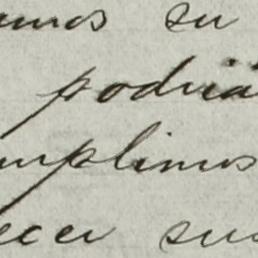 amos su
podriá
mplimos
ecer sus